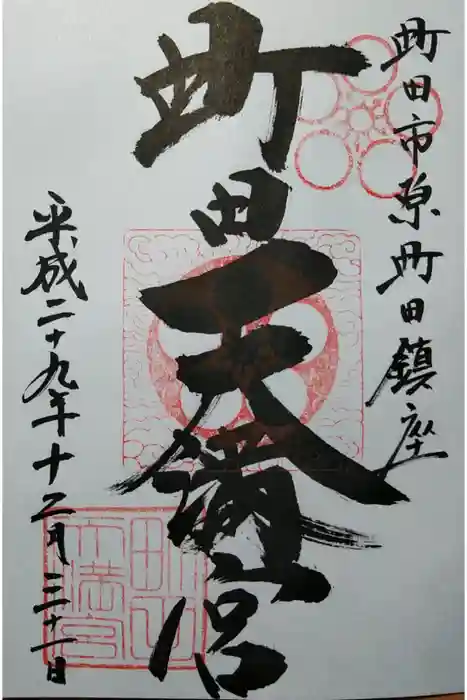 町田市原町田鎮座
町田天満宮
平成二十九年十二月三十一日
町田
天満宮